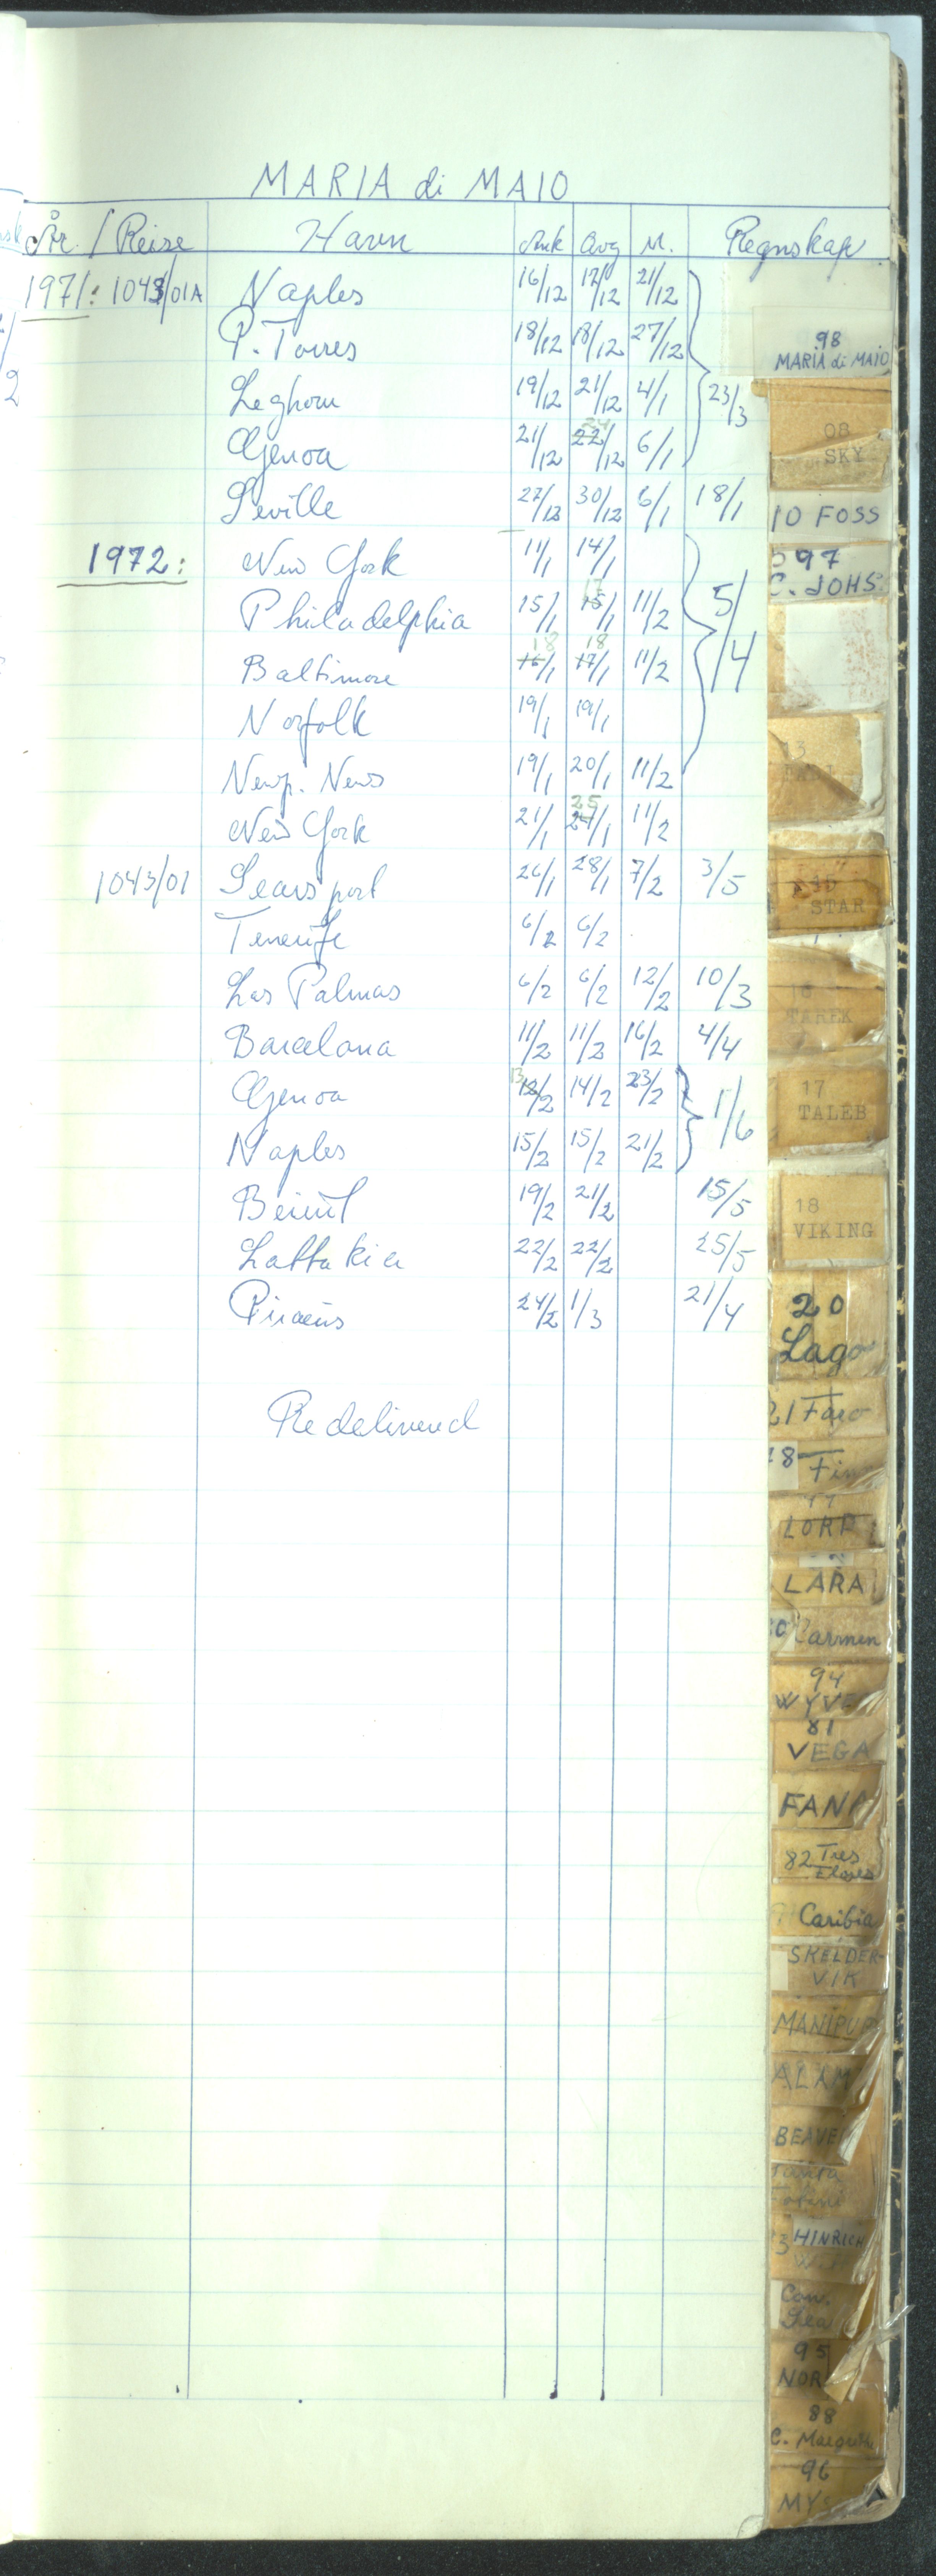 MARIA di MAIO
År / Reise Havn Ank Avg M. Regnskap
1971: 1043/01A Naples 16/12 17/12 21/12
P. Torres 18/12 18/12 27/12
Leghorn 19/12 21/12 4/1 23/3
Genoa 21/12 24/12 6/1
Seville 27/12 30/12 6/1 18/1
1972: New York 11/1 14/1
Philadelphia 15/1 17/1 11/2 5/4
Baltimore 18/1 18/1 11/2
Norfolk 19/1 19/1
Newp. News 19/1 20/1 11/2
New York 21/1 25/1 11/2
1043/01 Searsport 26/1 28/1 7/2 3/5
Tenerife 6/2 6/2
Las Palmas 6/2 6/2 12/2 10/3
Barcelona 11/2 11/2 16/2 4/4
Genoa 13/2 14/2 23/2 1/6
Naples 15/2 15/2 21/2
Beirut 19/2 21/2 15/5
Lattakia 22/2 22/2 25/5
Piraeus 24/2 1/3 21/4
Redelivered
98
MARIA di MAIO
08
SKY
10 FOSS
97
C. JOHS
13
STAR
16
TAREK
17
TALEB
18
VIKING
20
Lago
21 Faro
78
Finn
77
LORD
LARA
Carmen
94
WYVE
81
VEGA
FANA
82 Tres
Flores
Caribia
SKELDER-
VIK
MANIPUR
ALAM
BEAVE
HINRICH
Con.
Sea
95
NOR
88
C. Margrethe
96
MYS